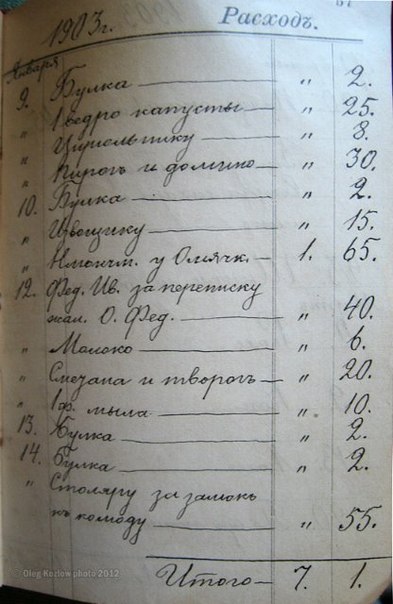 1903 г. Расходъ.
Января
9. Булка — " 2.
" 1 ведро капусты — " 25.
" Цирюльнику — " 8.
" Пирогъ и домино — " 30.
10. Булка — " 2.
" Извощику — " 15.
" у 1. 65.
12. Фед. Ив. за переписку
жал. О. Фед. — " 40.
" Молоко — " 6.
" Сметана и творогъ — " 20.
" 1 ф. мыла — " 10.
13. Булка — " 2.
14. Булка — " 2.
" Столяру за замокъ
къ комоду — " 55.
Итого — 7. 1.
Oleg Kozlow photo 2012